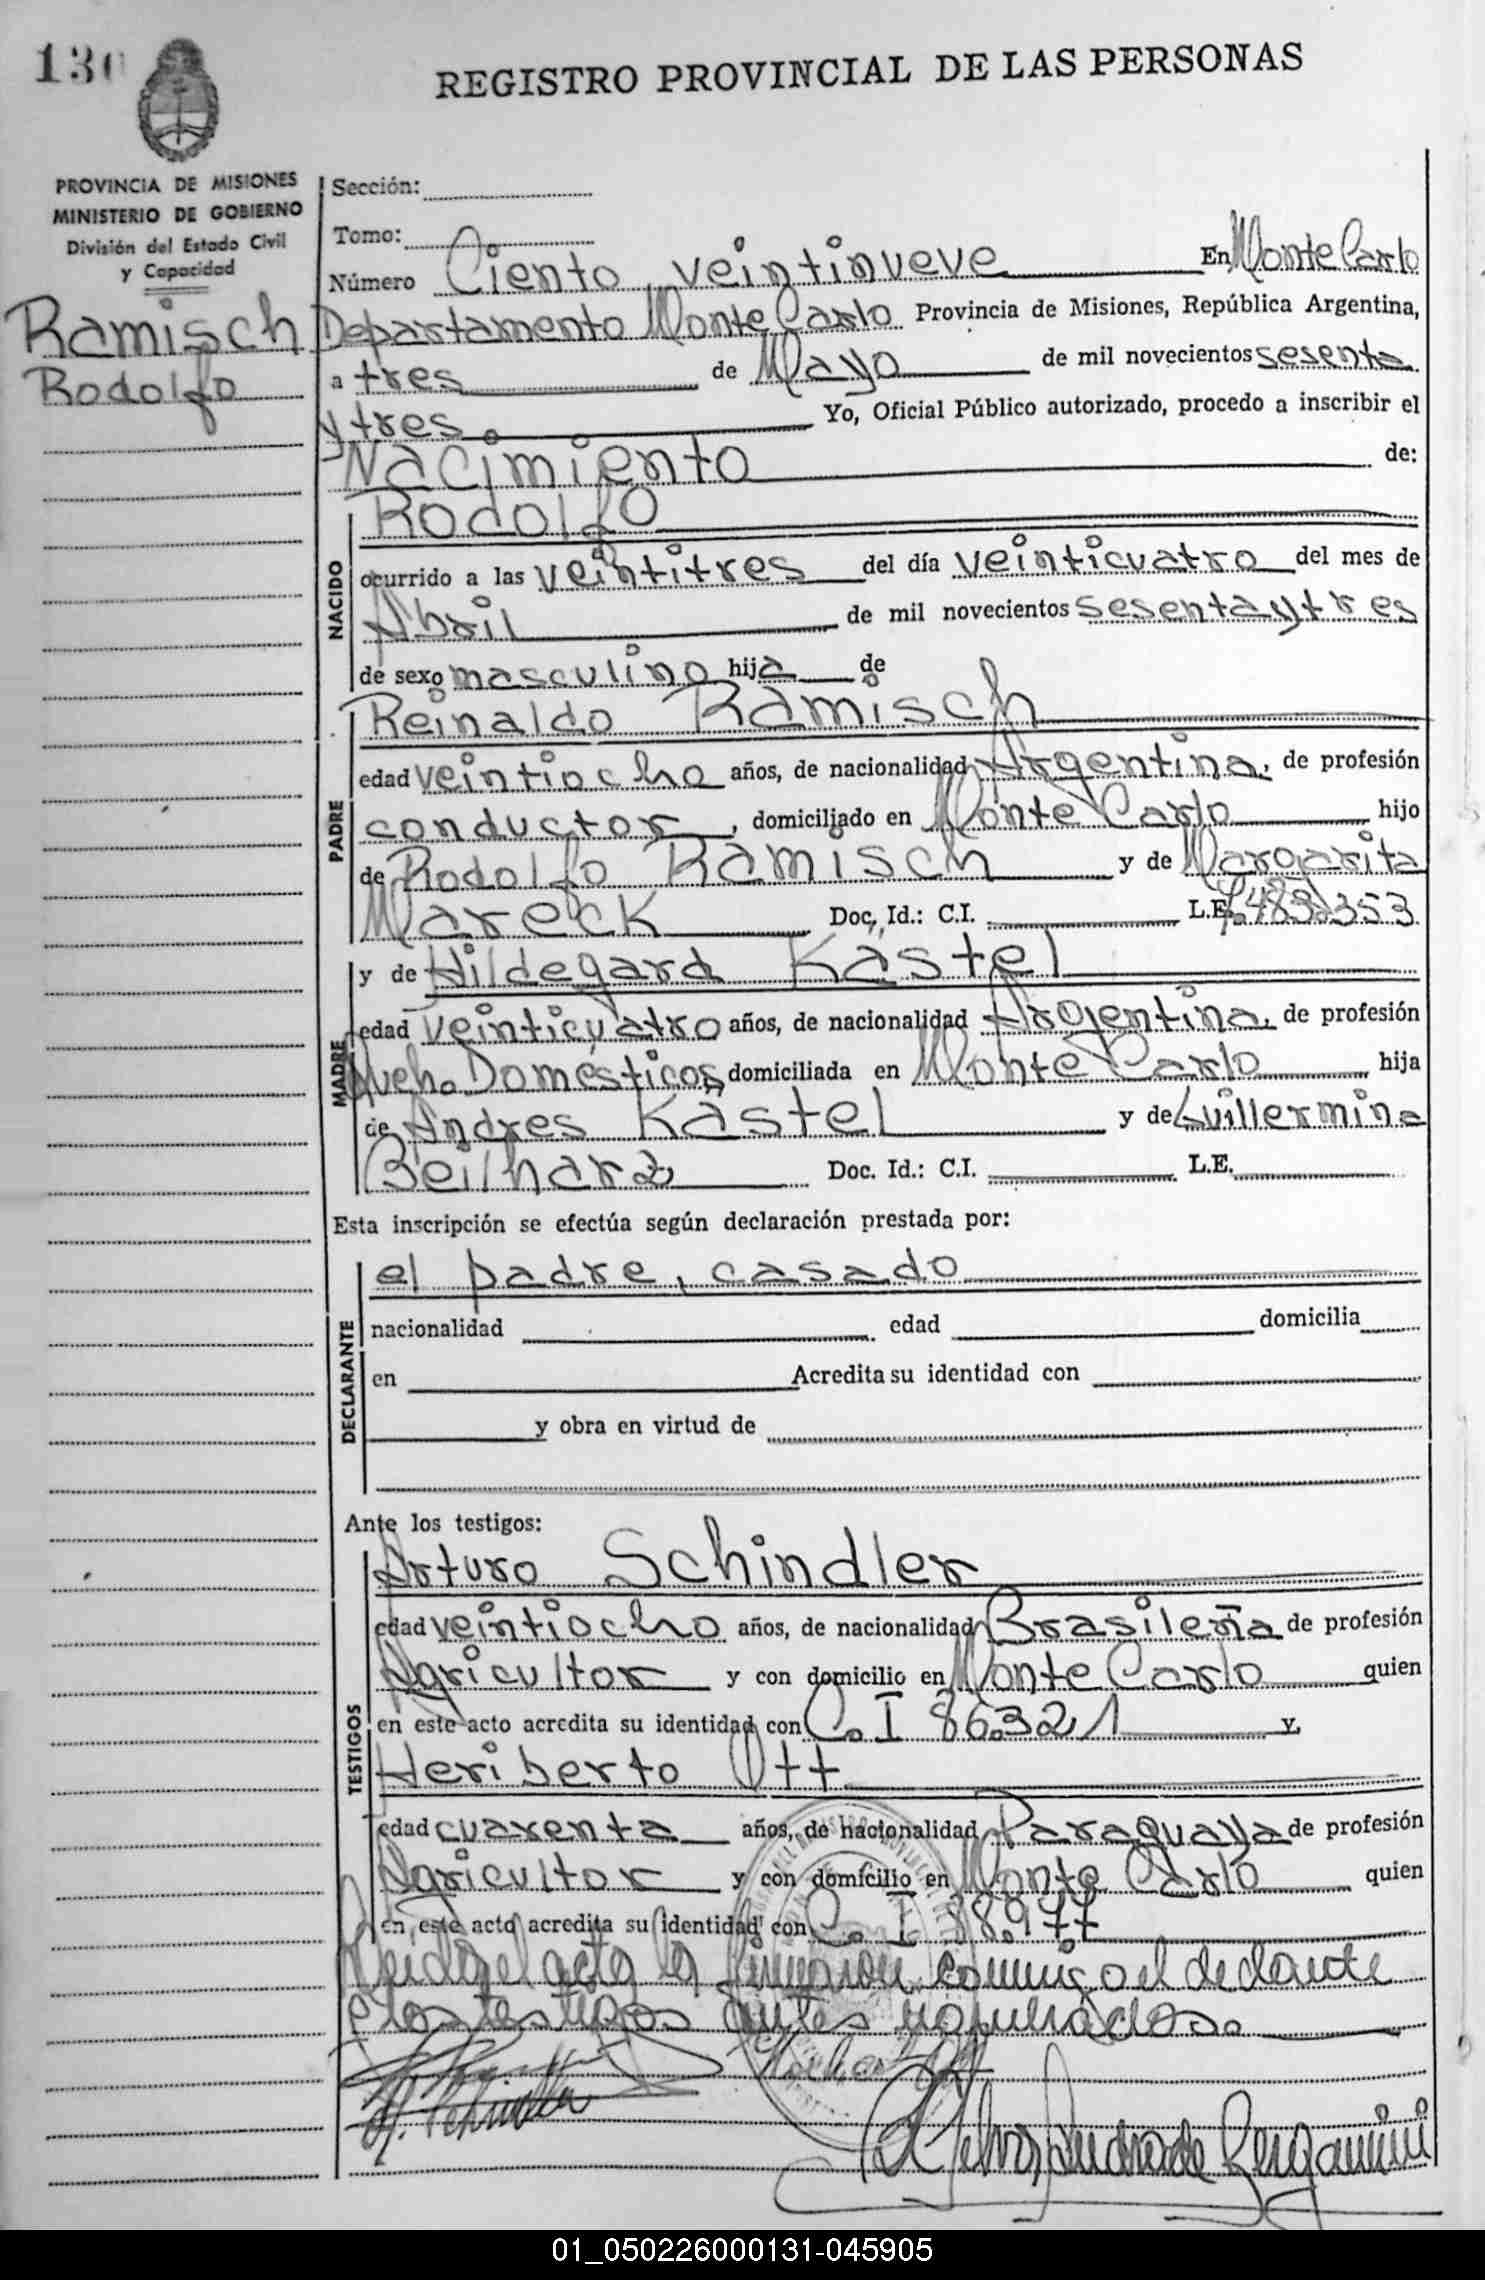 130
REGISTRO PROVINCIAL DE LAS PERSONAS
PROVINCIA DE MISIONES
MINISTERIO DE GOBIERNO
División del Estado Civil
y Capacidad
Ramisch
Rodolfo
Sección:
Tomo:
Número Ciento veintinueve En Monte Carlo
Departamento Monte Carlo Provincia de Misiones, República Argentina,
a tres de Mayo de mil novecientos sesenta
y tres. Yo, Oficial Público autorizado, procedo a inscribir el
Nacimiento de:
NACIDO
Rodolfo
ocurrido a las veintitres del día veinticuatro del mes de
Abril de mil novecientos sesenta y tres
de sexo masculino hija de
PADRE
Reinaldo Ramisch
edad veintiocho años, de nacionalidad Argentina, de profesión
conductor, domiciliado en Monte Carlo hijo
de Rodolfo Ramisch y de Margarita
Mareck Doc, Id.: C.I. L.E. 7.483.353
MADRE
y de Hildegard Kästel
edad veinticuatro años, de nacionalidad Argentina, de profesión
Queh. Domésticos domiciliada en Monte Carlo hija
de Andres Kästel y de Guillermina
Beilharz Doc. Id.: C.I. L.E.
Esta inscripción se efectúa según declaración prestada por:
DECLARANTE
el padre, casado
nacionalidad edad domicilia
en Acredita su identidad con
y obra en virtud de
Ante los testigos:
TESTIGOS
Arturo Schindler
edad veintiocho años, de nacionalidad Brasileña de profesión
Agricultor y con domicilio en Monte Carlo quien
en este acto acredita su identidad con C. I 86.321 y,
Heriberto Ott
edad cuarenta años, de nacionalidad Paraguaya de profesión
Agricultor y con domicilio en Monte Carlo quien
en este acto acredita su identidad con C. I 88.977
Leida el acta la firmaron conmigo el declarante
y los testigos antes nombrados.
A. Schindler
01_050226000131-045905